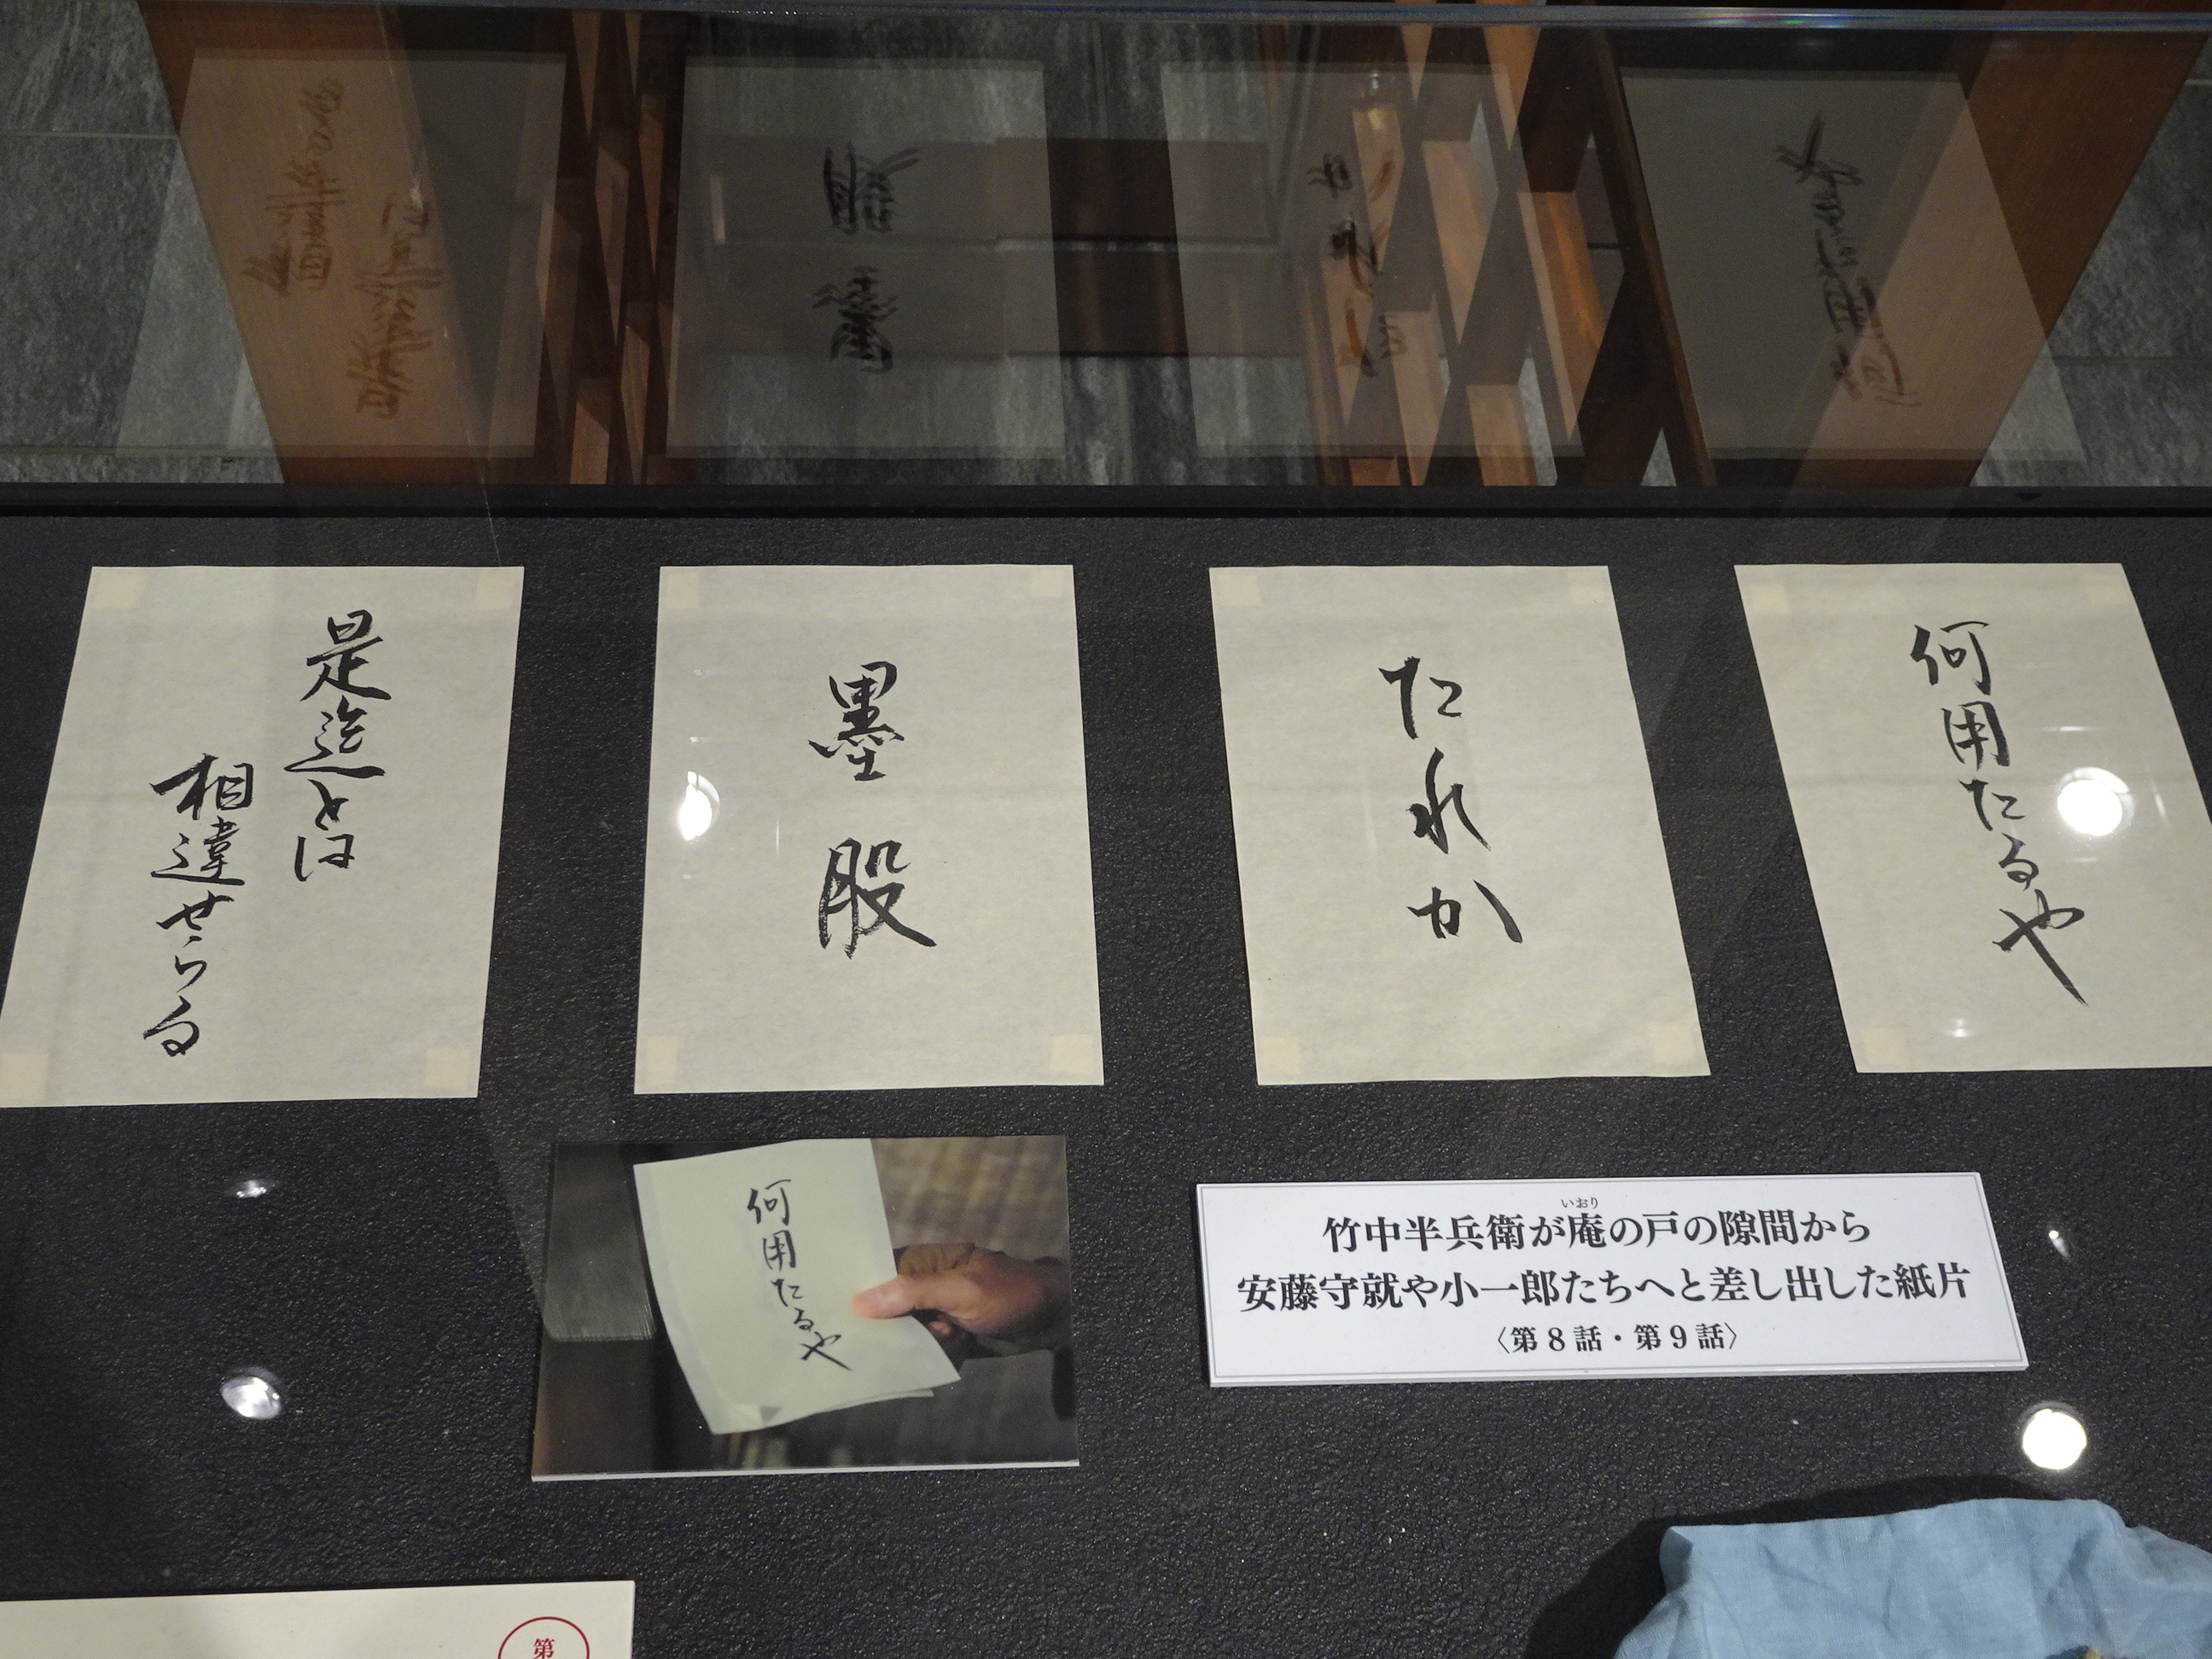 何用たるや
たれか
墨股
是迄とは
相違せらる
何用たるや
いおり
竹中半兵衛が庵の戸の隙間から
安藤守就や小一郎たちへと差し出した紙片
〈第8話・第9話〉
第